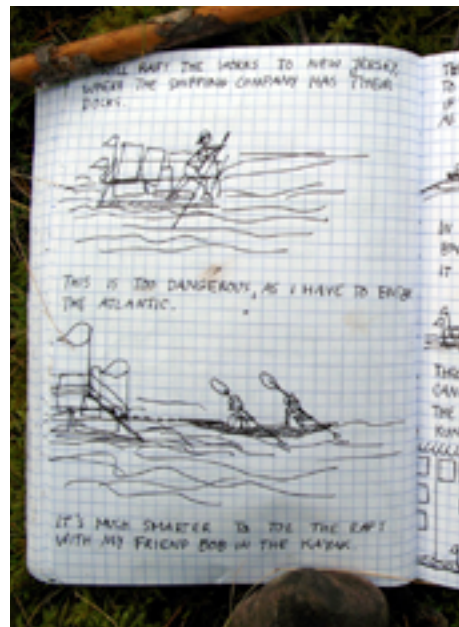 WILL RAFT THE WORKS TO NEW JERSEY,
WHERE THE SHIPPING COMPANY HAS THEIR
DOCKS.
THIS IS TOO DANGEROUS, AS I HAVE TO ENTER
THE ATLANTIC.
IT'S MUCH SMARTER TO TOE THE RAFT
WITH MY FRIEND BOB IN THE KAYAK.
TO
IN
IT
THE